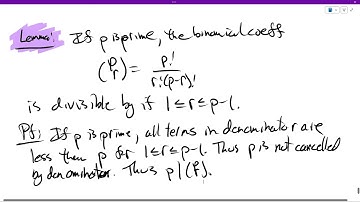 Lemma: If p is prime, the binomial coeff
(p r) = p! / r!(p-r)!
is divisible by if 1 ≤ r ≤ p-1.
Pf: If p is prime, all terms in denominator are
less than p for 1 ≤ r ≤ p-1. Thus p is not cancelled
by denominator. Thus p | (p r).